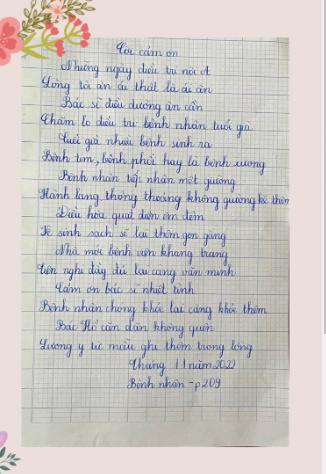 Lời cảm ơn
Những ngày điều trị nội A
Lòng tôi ân cần thật là ân
Bác sĩ điều dưỡng ân cần
Chăm lo điều trị bệnh nhân tuổi già
Tuổi già nhiều bệnh sinh ra
Bệnh tim, bệnh phổi hay là bệnh xương
Bệnh nhân tiếp nhận một giường
Hành lang thông thoáng không giường kê thêm
Điều hòa quạt điện êm đềm
Vệ sinh sạch sẽ lại thêm gọn gàng
Nhà mới bệnh viện khang trang
Tiện nghi đầy đủ lại càng văn minh
Cảm ơn bác sĩ nhiệt tình
Bệnh nhân chóng khỏe lại càng khỏe thêm
Bác Hồ căn dặn không quên
Lương y từ mẫu ghi thêm trong lòng
Tháng 11 năm 2022
Bệnh nhân - p209